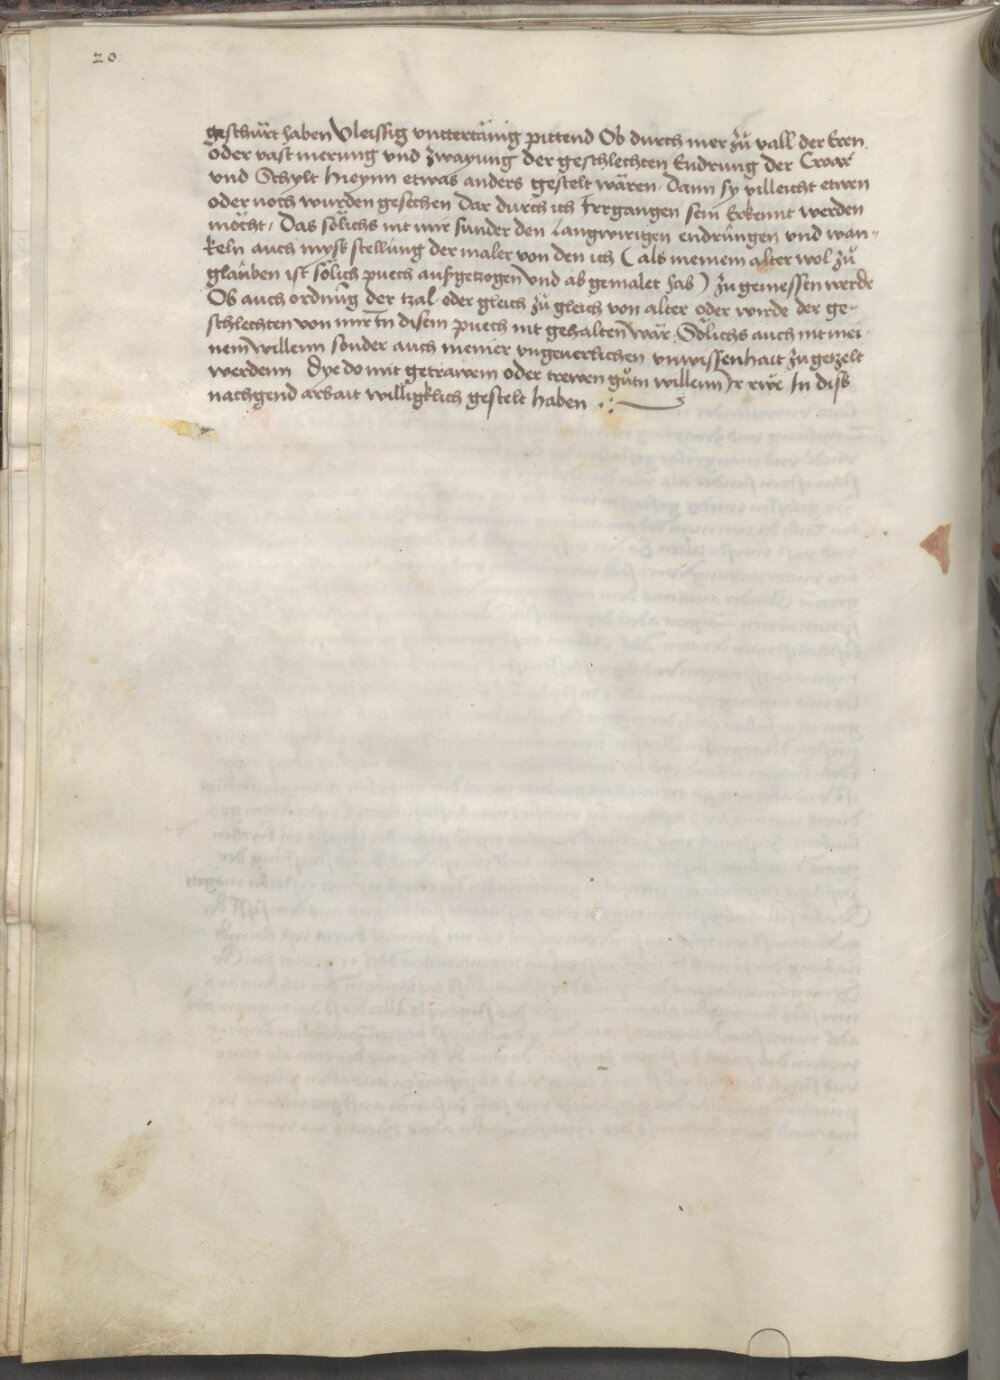 20
geschürt haben Vleissig vnttertänig pittend Ob durch mer zů vall der Eren
oder vast merung vnd zwayung der geschlechten Endrung der
vnd Schylt hieynn etwas anders gestelt wären, dann sy villeicht etwen
oder noch wurden gesechen Dar durch ich Irrgangen sein Erkennt werden
möcht, Das sölichs nit mir sunder den Langwirigen endrüngen vnd wan-
keln auch myss stellüng der maler von den ich (als meinem alter wol zů
glauben ist sölich puech aussgetzogen vnd ab gemalet hab) zu gemessen werde
Ob auch ordnüg der tzal oder gleich zů gleich von alter oder wirde der ge-
schlechten von mir In disem puech nit gehalten wär, Sölichs auch nit mei-
nem willenn sonder auch meiner vngeuerlichen vnwissenhait zu getzelt
werdenn Dye do mit getrawem oder trewen gůtn willenn In diss
nachgend arbait willigklich gestelt haben .: